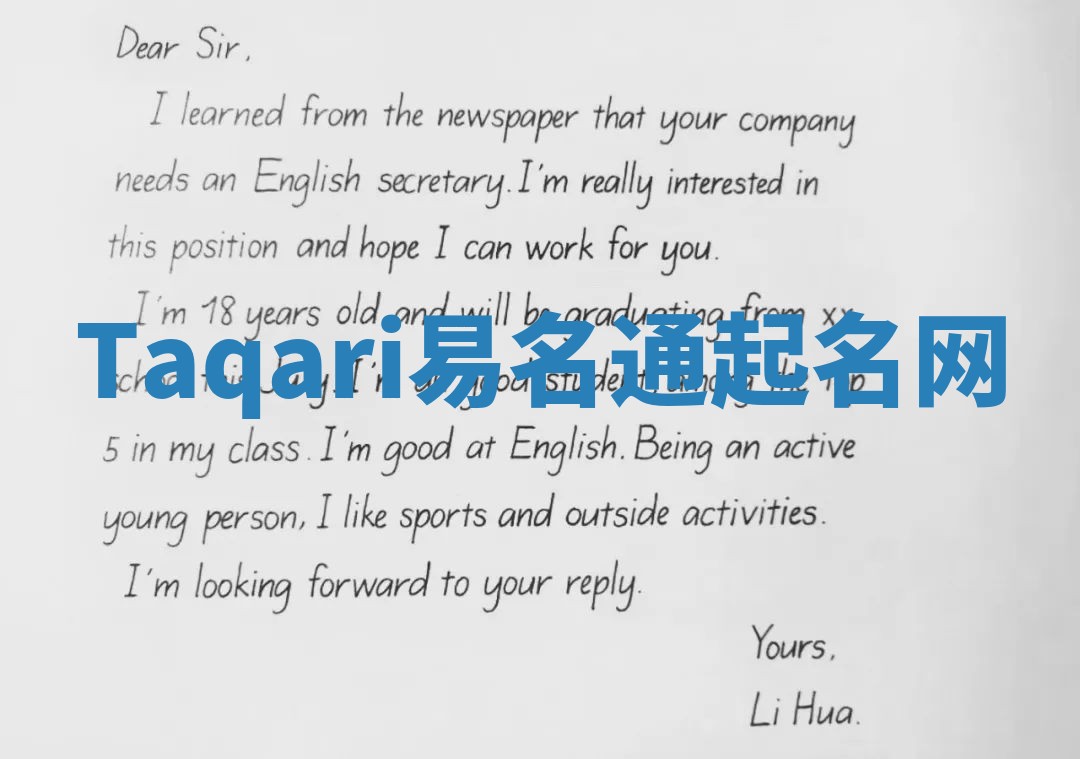 Dear Sir,
I learned from the newspaper that your company
needs an English secretary. I'm really interested in
this position and hope I can work for you.
I'm 18 years old and will be graduating from xx
Taqari易名通起名网
school this July. I'm a good student among the top
5 in my class. I'm good at English. Being an active
young person, I like sports and outside activities.
I'm looking forward to your reply.
Yours,
Li Hua.